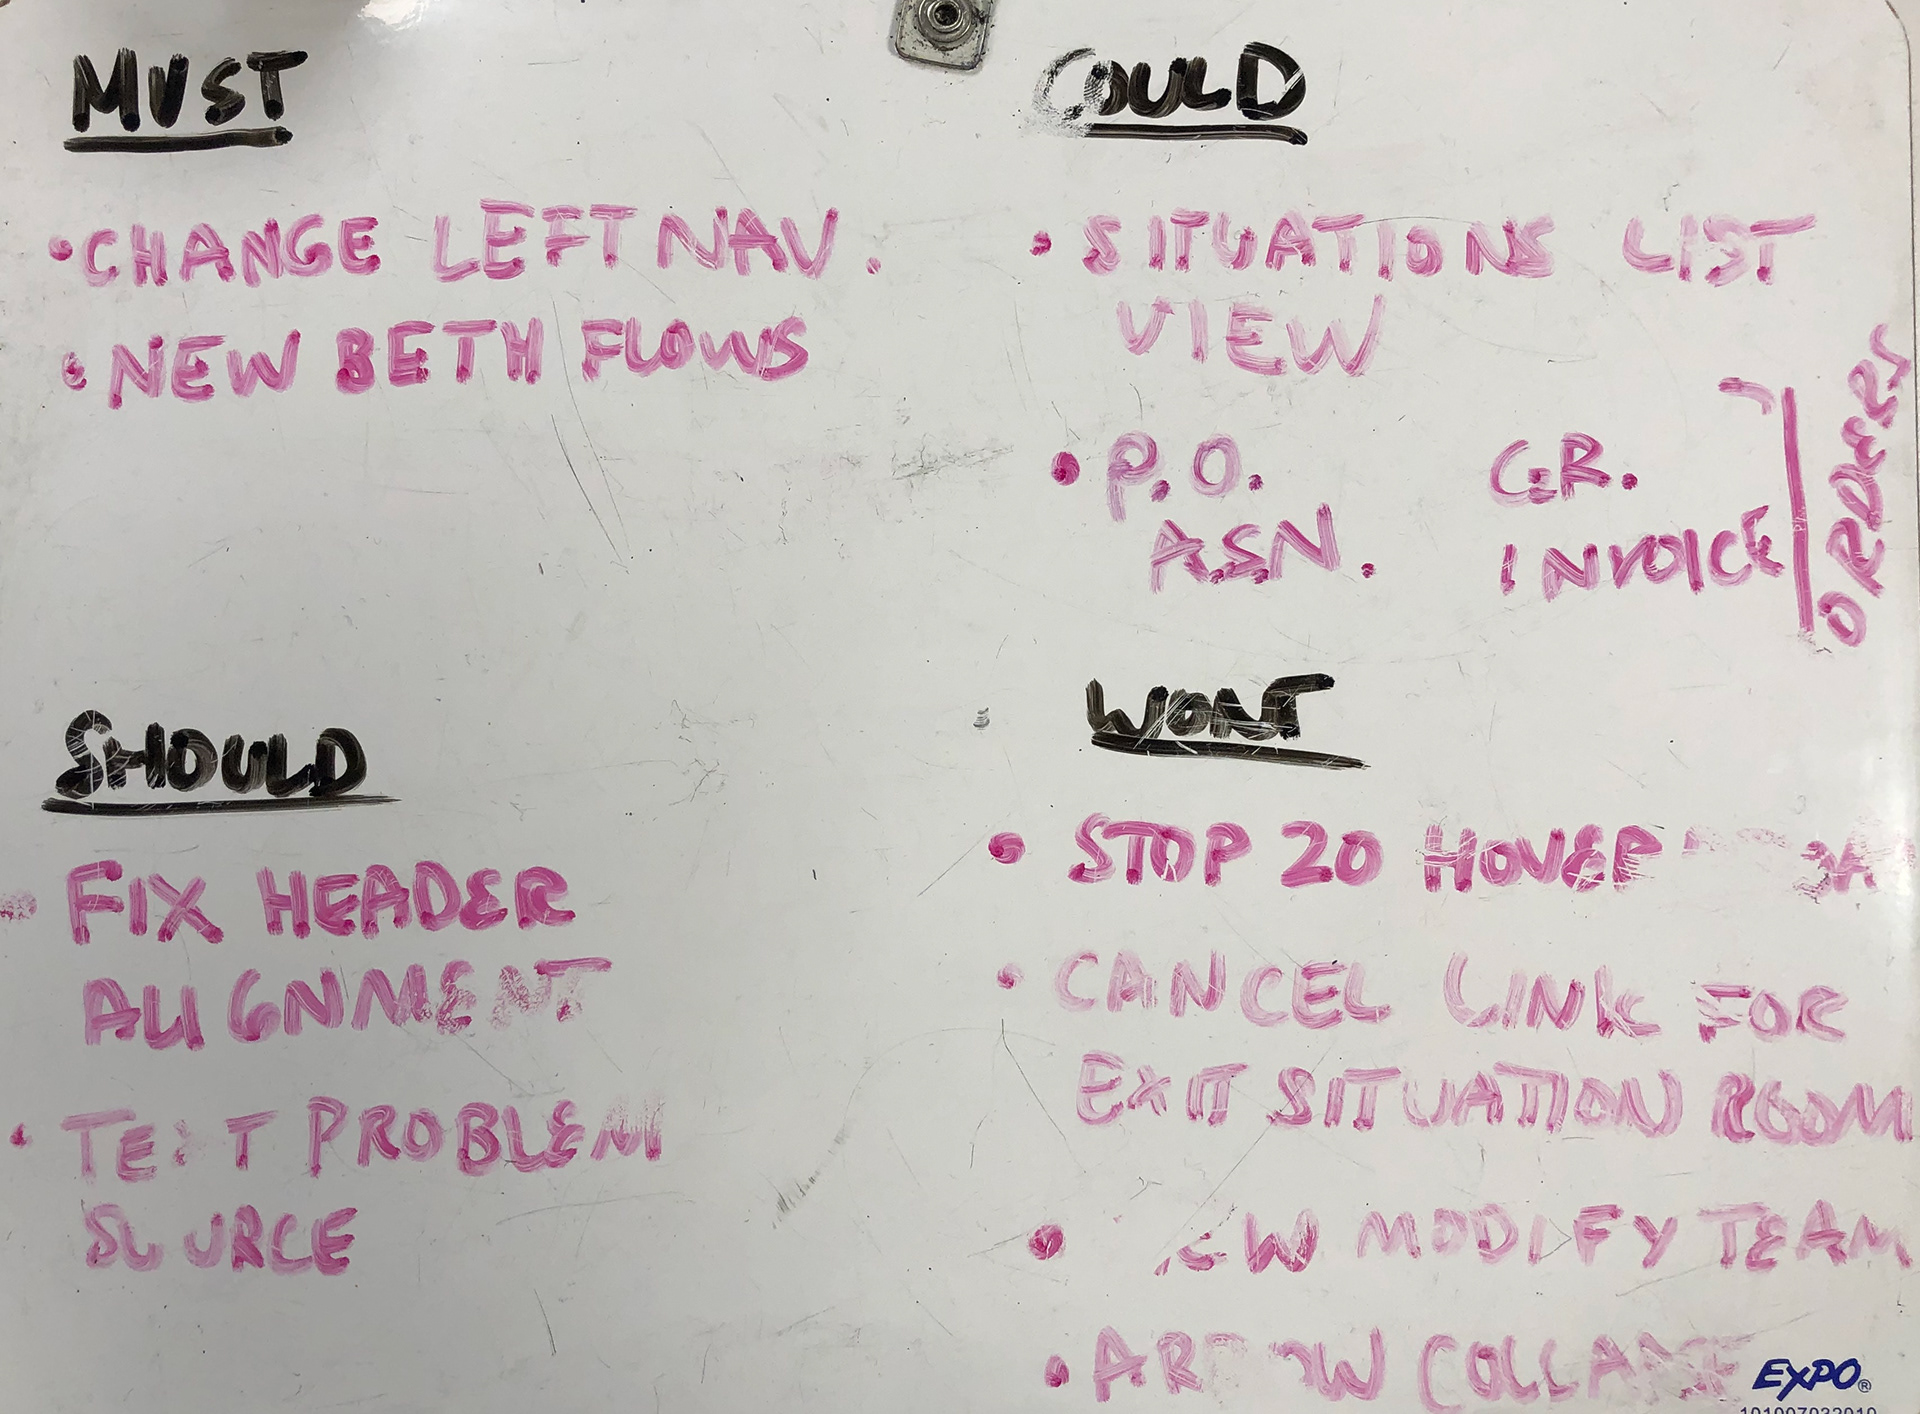 MUST
• CHANGE LEFT NAV.
• NEW BETH FLOWS
SHOULD
• FIX HEADER
ALIGNMENT
• TEXT PROBLEM
SOURCE
COULD
• SITUATIONS LIST
VIEW
• P.O. G.R.
A.S.N. INVOICE
ORDERS
WONT
• STOP 20 HOVER
• CANCEL LINK FOR
EXIT SITUATION ROOM
• MODIFY TEAM
• ARROW COLLAPSE
EXPO®